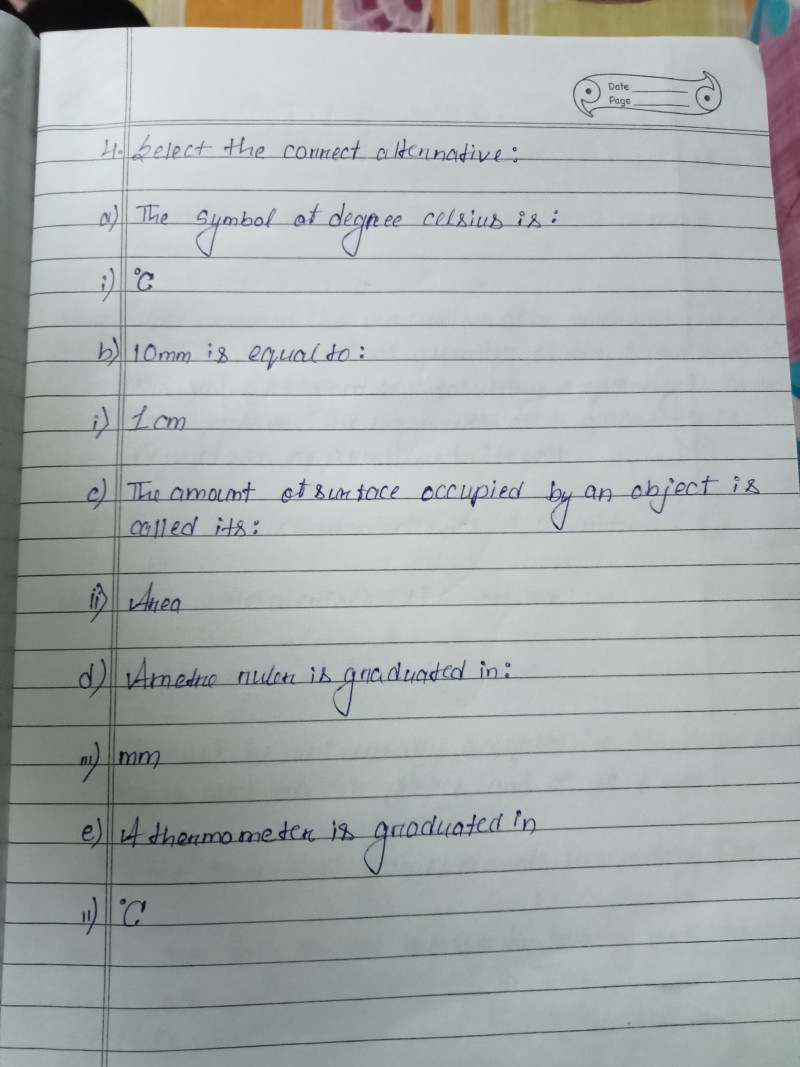 Date
Page
4. Select the correct alternative:
a) The symbol of degree celsius is:
i) °C
b) 10mm is equal to:
i) 1 cm
c) The amount of surface occupied by an object is
called its:
ii) Area
d) A metric ruler is graduated in:
iii) mm
e) A thermometer is graduated in
ii) °C